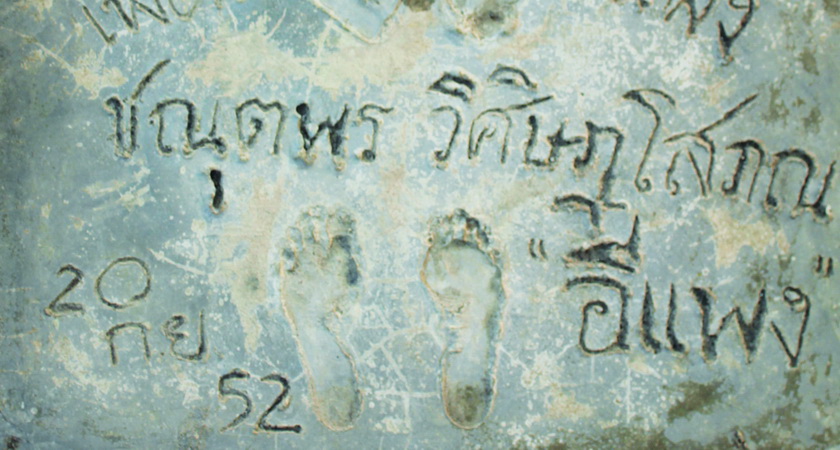 ชณุตพร วิศิษฏโสภณ
"อีแพง"
20
ก.ย
52